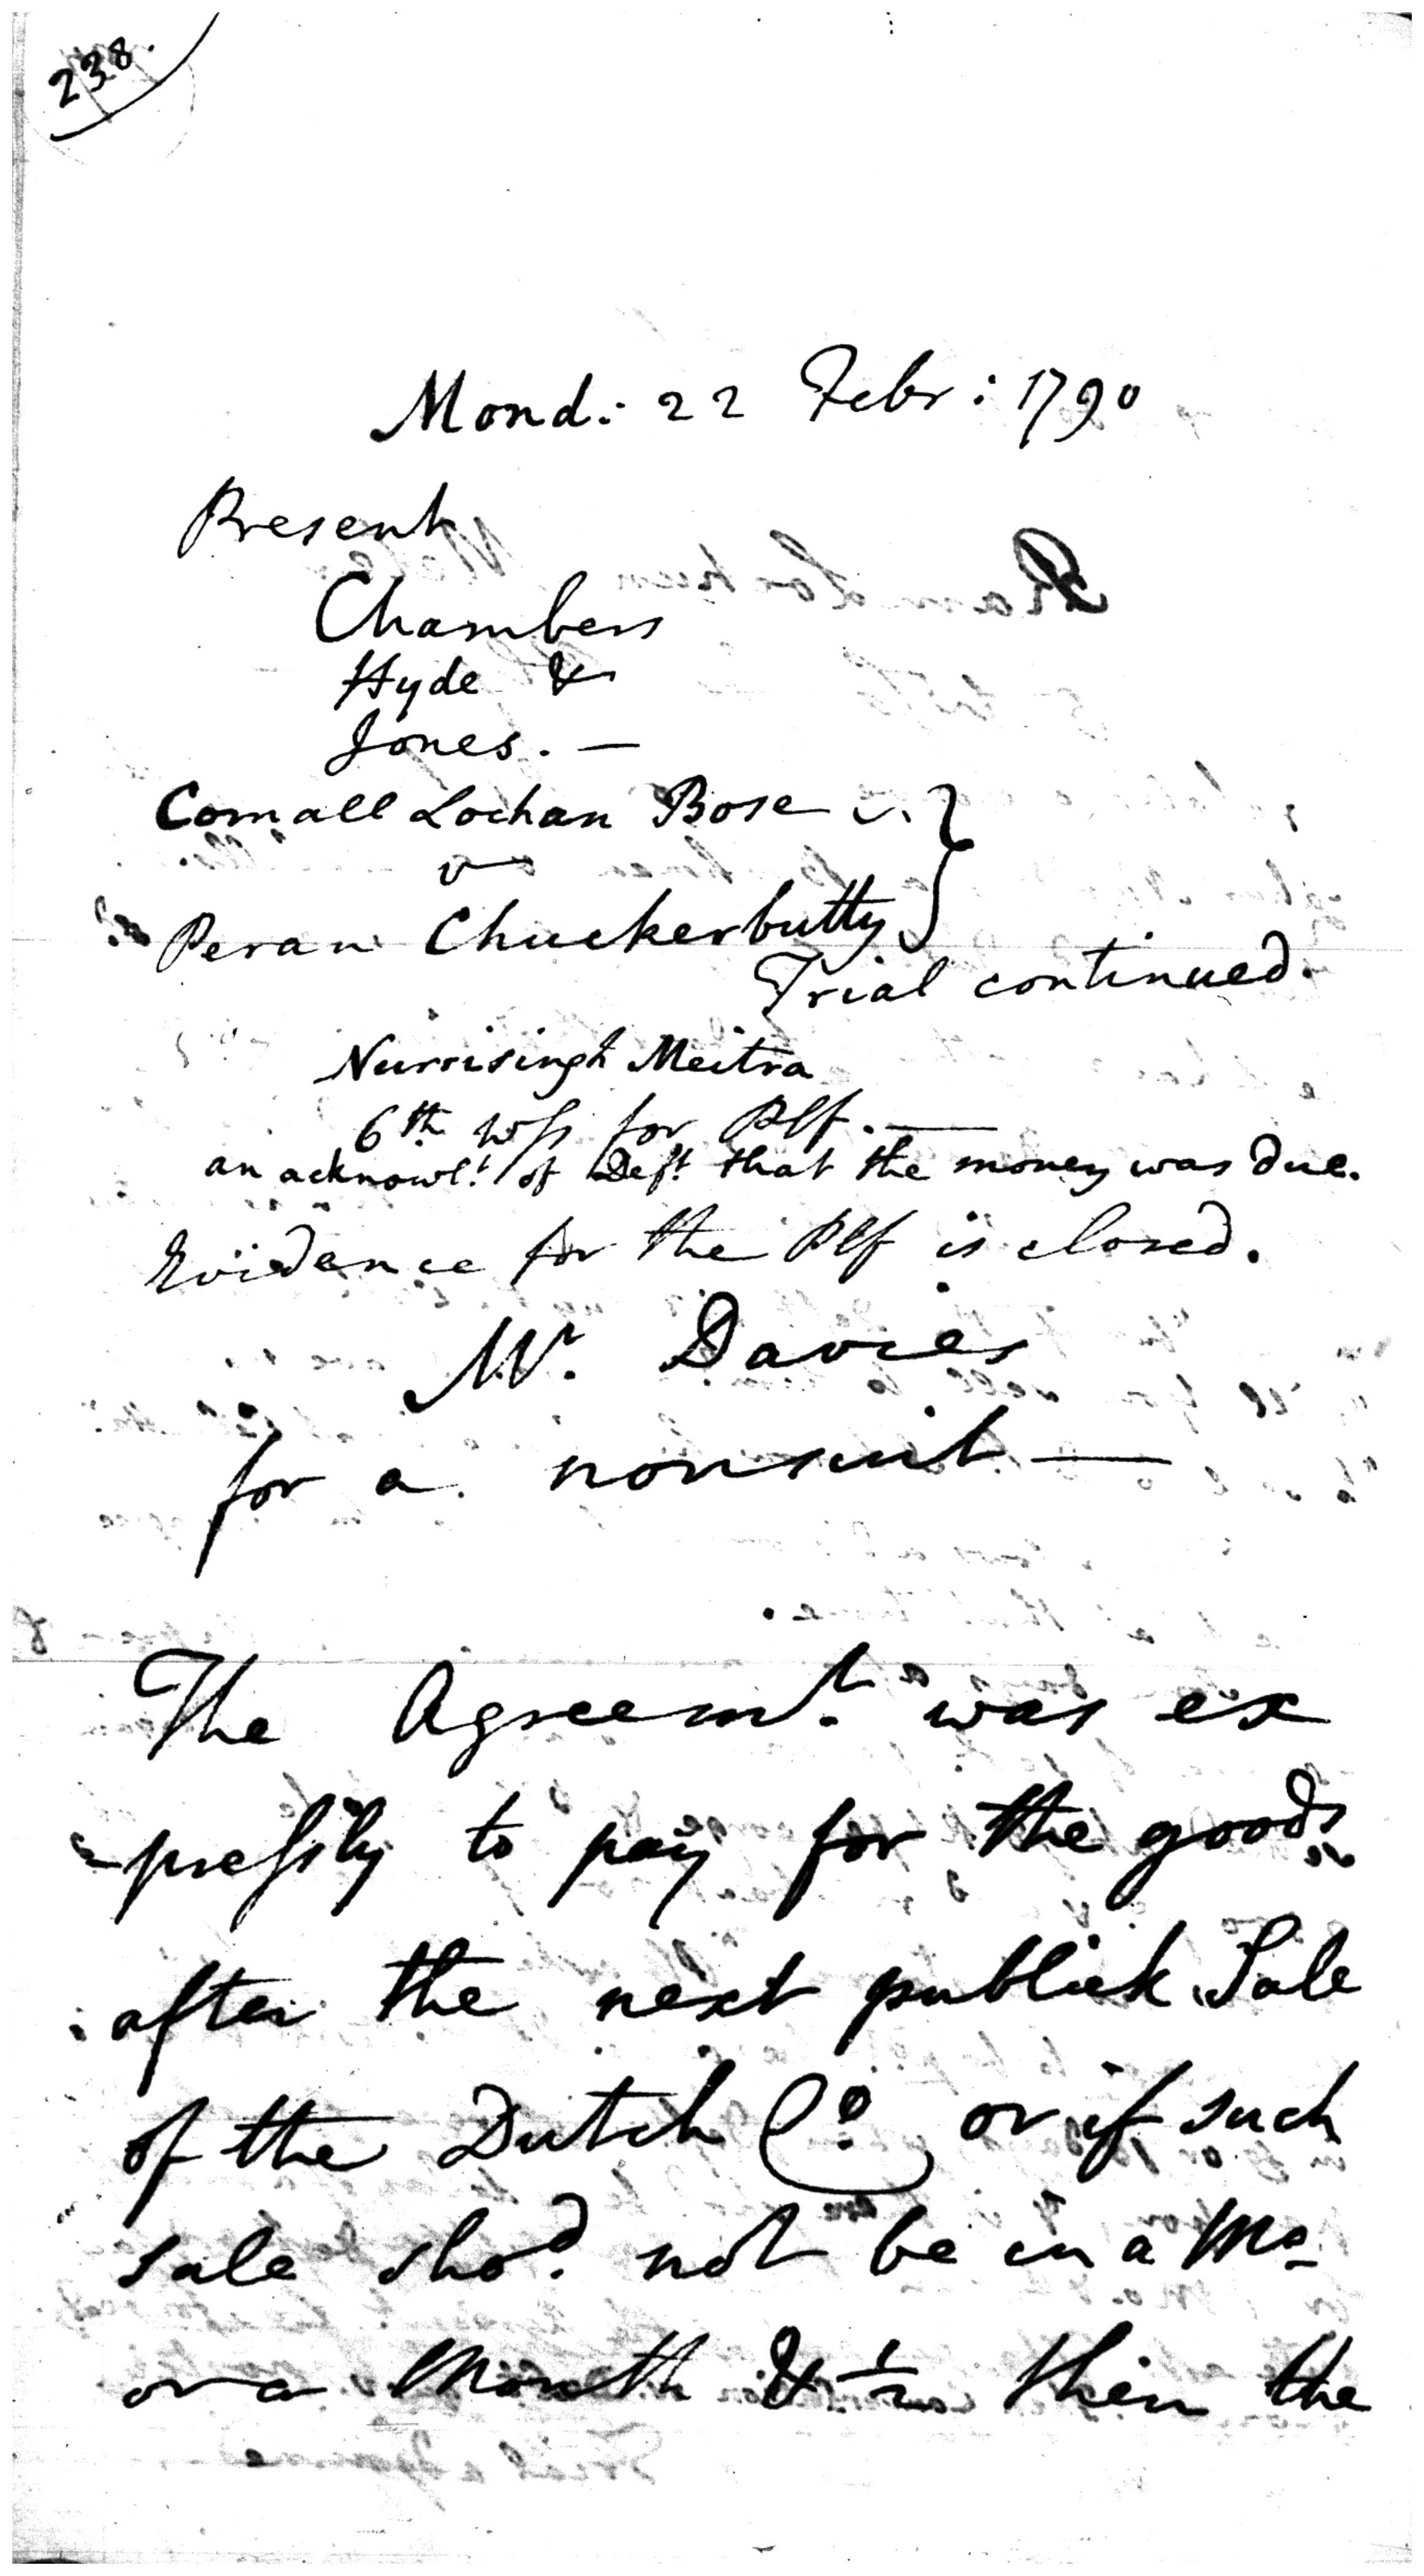 238.
Mond: 22 Febr: 1790
Present
Chambers
Hyde &
Jones. —
Comall Lochan Bose v. }
v
Peran Chuckerbutty
Trial continued.
Nurrisingh Meitra
6th Wss for Plf. —
an acknowlt. of Deft. that the money was due.
Evidence for the Plf is closed.
Mr. Davies
for a nonsuit —
The Agreemt. was ex
=pressly to pay for the goods
after the next publick Sale
of the Dutch Co. or if such
sale shod. not be in a Mo
or a Month & ½ then the